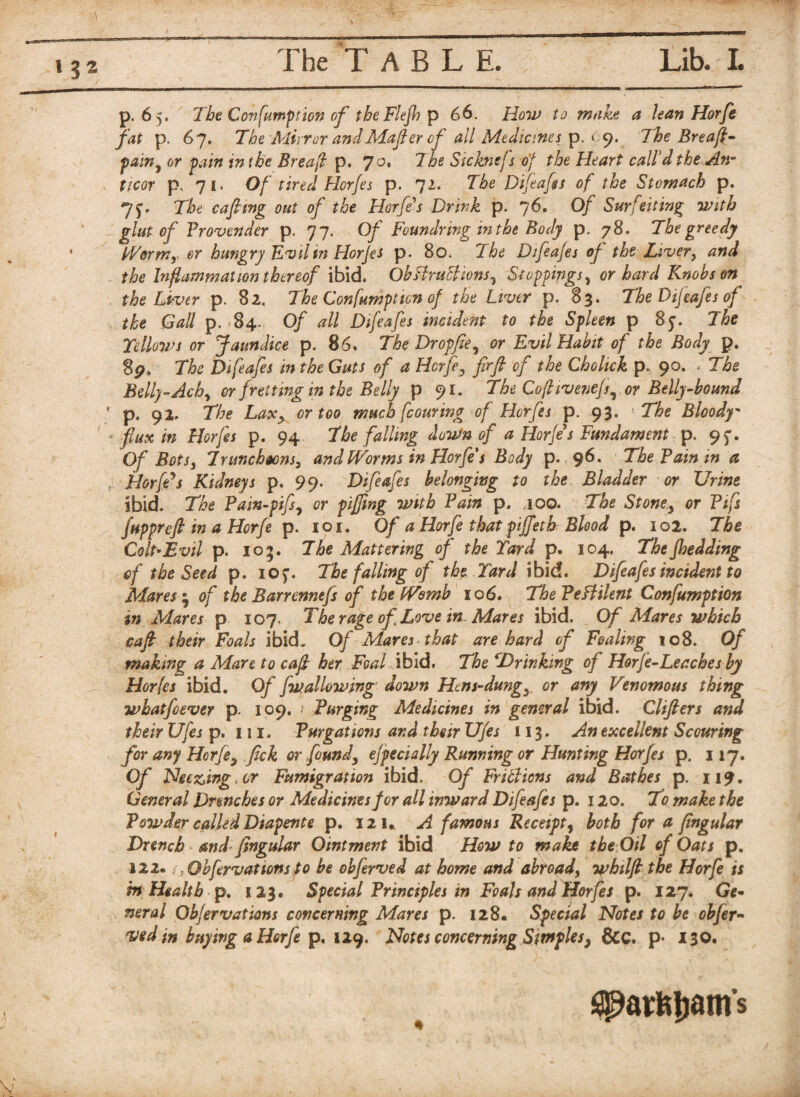 132 The TABLE. Lib. I.
p. 65. The Conſumption of the Fleſh p 66. How to make a lean Horſe
fat p. 67. The Mirror and Maſter of all Medicines p. 69. The Breaſt-
pain, or pain in the Breaſt p. 70. The Sickneſs of the Heart call'd the An-
ticor p. 71. Of tired Horſes p. 72. The Diſeaſes of the Stomach p.
75. The caſting out of the Horſe's Drink p. 76. Of Surfeiting with
glut of Provender p. 77. Of Foundring in the Body p. 78. The greedy
Worm, or hungry Evil in Horſes p. 80. The Diſeaſes of the Liver, and
the Inflammation thereof ibid. Obſtructions, Stoppings, or hard Knobs on
the Liver p. 82. The Conſumption of the Liver p. 83. The Diſeaſes of
the Gall p. 84. Of all Diſeaſes incident to the Spleen p 85. The
Yellows or Jaundice p. 86. The Dropſie, or Evil Habit of the Body p.
89. The Diſeaſes in the Guts of a Horſe, firſt of the Cholick p. 90. The
Belly-Ach, or fretting in the Belly p 91. The Coſtiveneſs, or Belly-bound
p. 92. The Lax, or too much ſcouring of Horſes p. 93. The Bloody-
flux in Horſes p. 94 The falling down of a Horſe's Fundament p. 95.
Of Bots, Truncheons, and Worms in Horſe's Body p. 96. The Pain in a
Horſe's Kidneys p. 99. Diſeaſes belonging to the Bladder or Urine
ibid. The Pain-piſs, or piſſing with Pain p. 100. The Stone, or Piſs
ſuppreſt in a Horſe p. 101. Of a Horſe that piſſeth Blood p. 102. The
Colt-Evil p. 103. The Mattering of the Yard p. 104. The ſhedding
of the Seed p. 105. The falling of the Yard ibid. Diſeaſes incident to
Mares; of the Barrenneſs of the Womb 106. The Peſtilent Conſumption
in Mares p 107. The rage of Love in Mares ibid. Of Mares which
caſt their Foals ibid. Of Mares that are hard of Foaling 108. Of
making a Mare to caſt her Foal ibid. The Drinking of Horſe-Leaches by
Horſes ibid. Of ſwallowing down Hens-dung, or any Venomous thing
whatſoever p. 109. Purging Medicines in general ibid. Cliſters and
their Uſes p. 111. Purgations and their Uſes 113. An excellent Scouring
for any Horſe, ſick or ſound, eſpecially Running or Hunting Horſes p. 117.
Of Neezing, or Fumigration ibid. Of Frictions and Bathes p. 119.
General Drenches or Medicines for all inward Diſeaſes p. 120. To make the
Powder called Diapente p. 121. A famous Receipt, both for a ſingular
Drench and ſingular Ointment ibid How to make the Oil of Oats p.
122. Obſervations to be obſerved at home and abroad, whilſt the Horſe is
in Health p. 123. Special Principles in Foals and Horſes p. 127. Ge-
neral Obſervations concerning Mares p. 128. Special Notes to be obſer-
ved in buying a Horſe p. 129. Notes concerning Simples, &c. p. 130.
Markham's